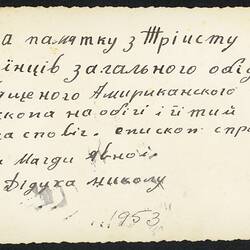 а памятку з Тріисту
інців загального обід
ященого Американского
скопа на обігі і й тий
на спо віг. епископ спр
Магди Явної
Дідуха Миколу
1953